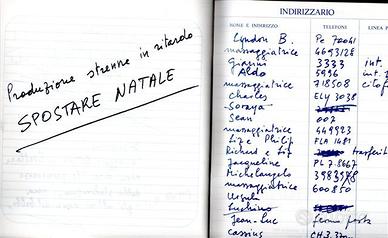 Produzione strenne in ritardo
SPOSTARE NATALE
INDIRIZZARIO
NOME E INDIRIZZO TELEFONI LINEA P
Lyndon B. Pe 72041
massaggiatrice 4693128
Gianni 3333 int.
Aldo 5996 int.
massaggiatrice 718508
Charles ELY 3038
Soraya
Sean 007
massaggiatrice 449923
Liz e Philip FLA 1481
Richard e Liz
Jacqueline PL 7.8667
Michelangelo
massaggiatrice 600.850
Ursula
Luchino
Jean-Luc fermo posta
Cassius